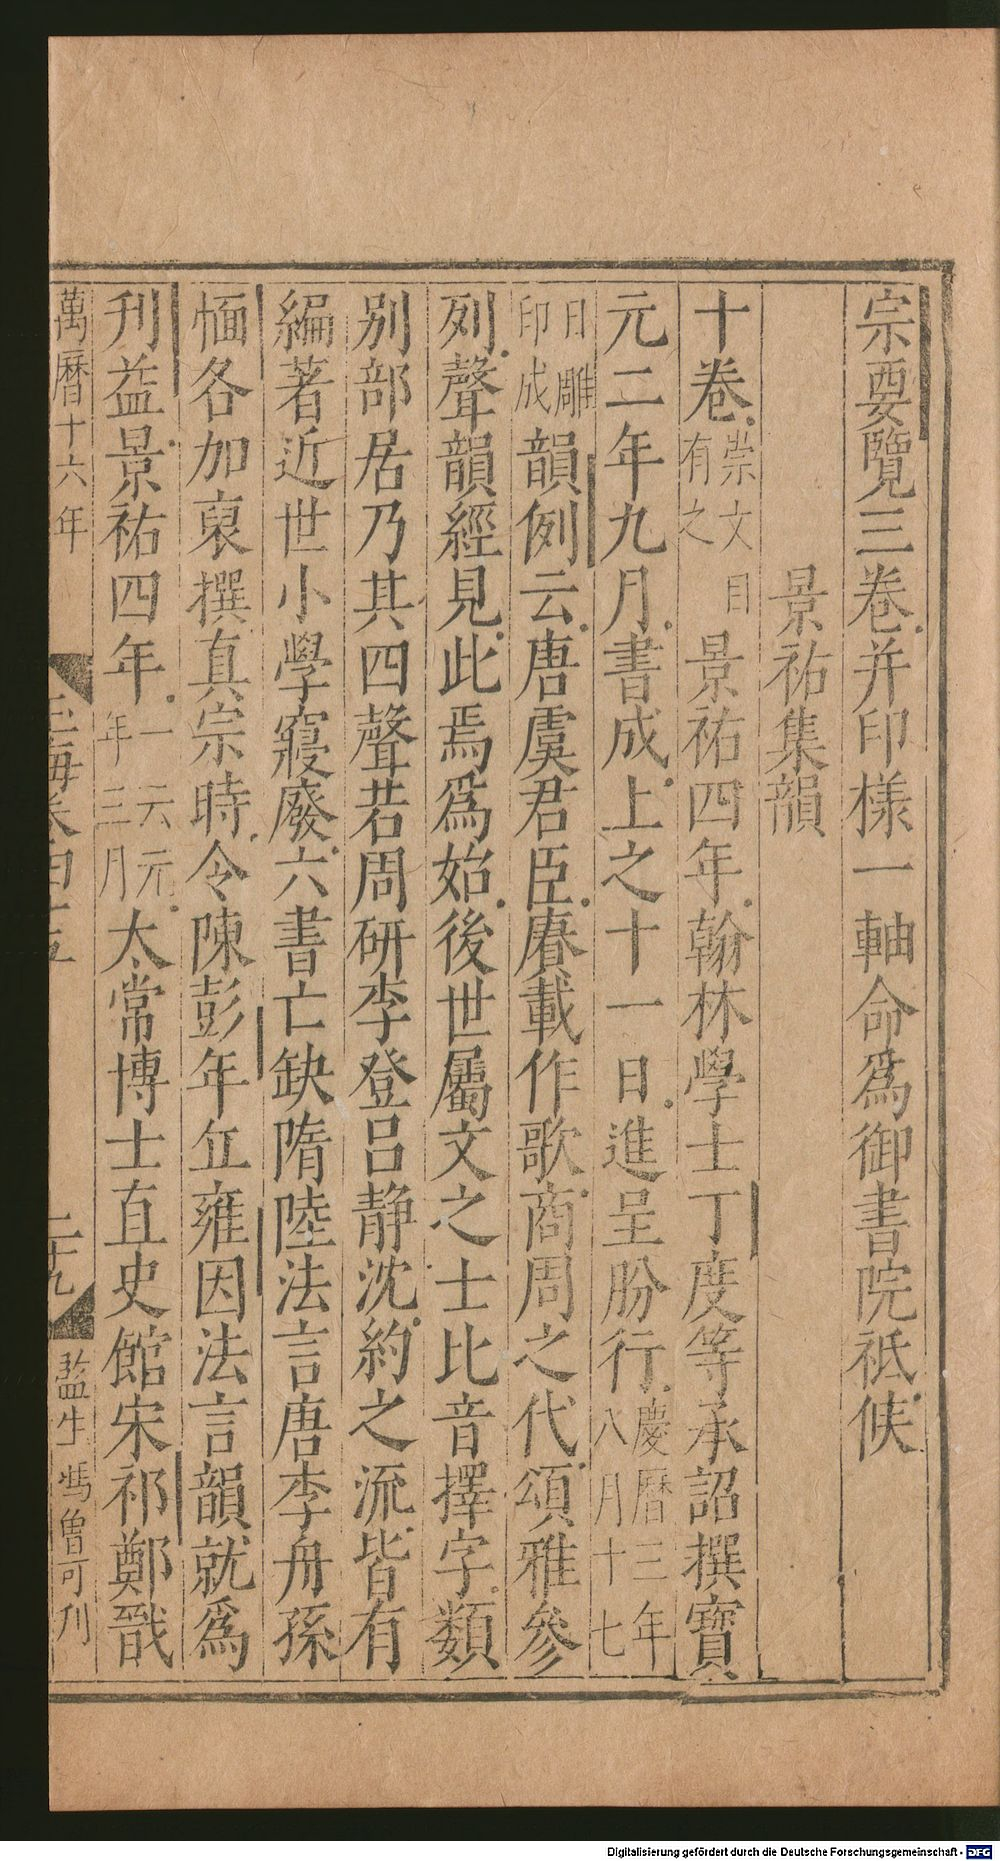 宗要覽三卷并印樣一軸命爲御書院祗候
景祐集韻
十卷崇文目有之景祐四年翰林學士丁度等承詔撰寶
元二年九月書成上之十一日進呈頒行慶曆三年八月十七
日雕印成韻例云唐虞君臣賡載作歌商周之代頌雅參
列聲韻經見此焉爲始後世屬文之士比音擇字類
別部居乃其四聲若周研李登呂静沈約之流皆有
編著近世小學寖廢六書亡缺隋陸法言唐李舟孫
愐各加裒撰真宗時令陳彭年丘雍因法言韻就爲
刋益景祐四年一云元年三月太常博士直史館宋祁鄭戩
萬曆十六年
玉海卷四十五
二十九
監生馮曾可刊
Digitalisierung gefördert durch die Deutsche Forschungsgemeinschaft - DFG